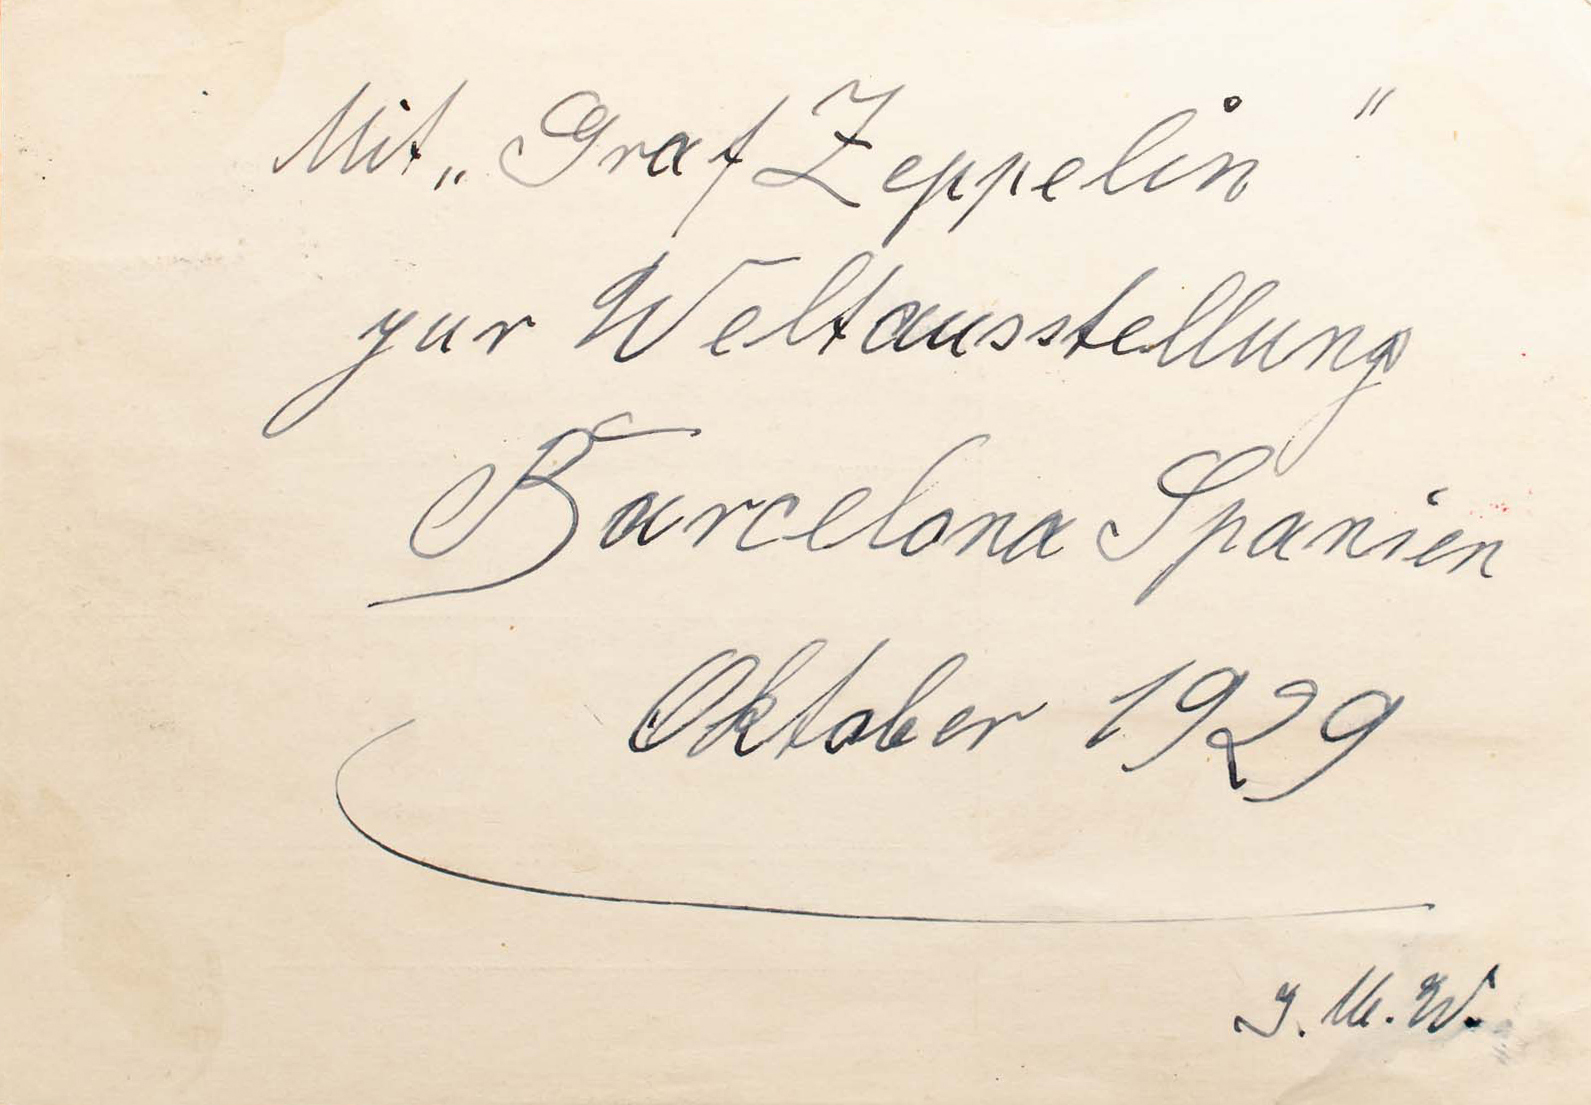 Mit „Graf Zeppelin"
zur Weltausstellung
Barcelona Spanien
Oktober 1929
J. M. W.